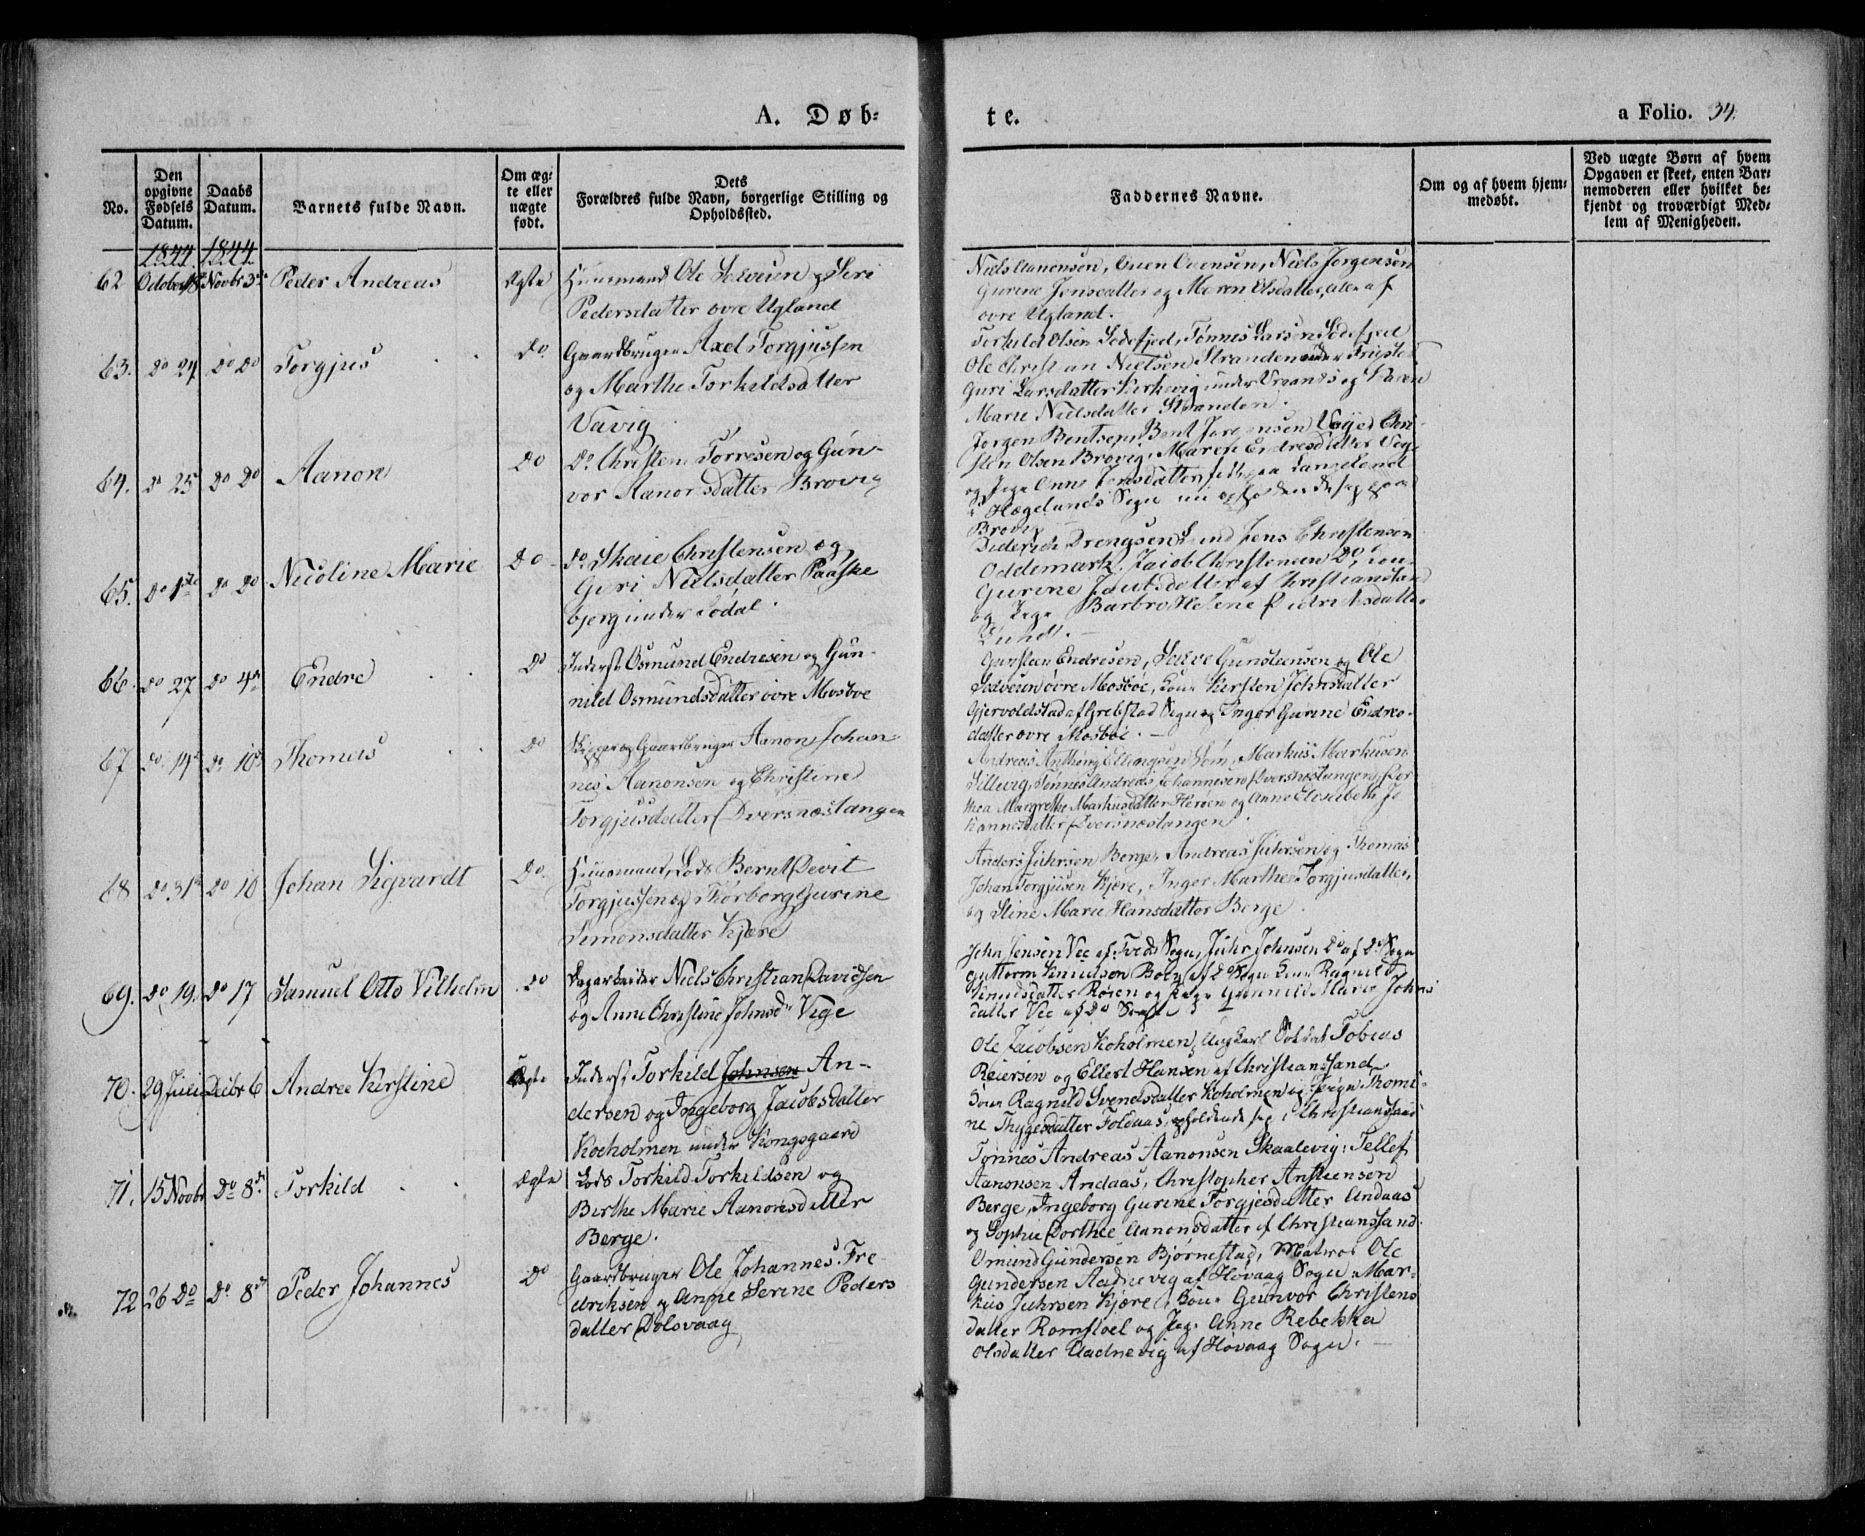 A. Døb-
te.
a Folio. 34.
No.
Den
opgivne
Fødsels
Datum.
Daabs
Datum.
Barnets fulde Navn.
Om æg-
te eller
uægte
født.
Dets
Forældres fulde Navn, borgerlige Stilling og
Opholdssted.
Faddernes Navne.
Om og af hvem hjem-
medøbt.
Ved uægte Børn af hvem
Opgaven er skeet, enten Bar-
nemoderen eller hvilket be-
kjendt og troværdigt Med-
lem af Menigheden.
1844 1844
62 October 18 Novbr 3 Peder Andreas Ægte Huusmand Ole og Siri
Pedersdatter øvre Ugland
Niels Aanonsen, Niels Jørgensen
Gurine Jensdatter og Maren Olsdatter, alle af
øvre Ugland.
63. Do 24 Do Do Torgjus Do Gaardbruger Axel Torgjussen
og Marthe Torkildsdatter
Vavig
Torkild Olsen Tønnes Larsen
Ole Christian Nielsen Stranden under
Guri Larsdatter Kirkevig under og Karen
Marie Nielsdatter Stranden.
64. Do 25 Do Do Aanon Do Do Christen Tørresen og Gun-
vor Aanonsdatter Brovig
Jørgen Bentsen, Bent Jørgensen Chri-
sten Olsen Brovig, Maren Endresdatter
og Pige Anne Jensdatter Langeland
i Hægelands Sogn nu opholdende sig paa
Brovig
65. Do 1ste Do Do Nicoline Marie Do Do Christensen og
Guri Nielsdatter Paaske
bjerg under Sødal.
Diderich Drengsen Lund Jens Christensen
Oddemark, Jacob Christensen Do,
Gurine datter af Christiansand
og Pige Barbro Helene datter
Lund.
66. Do 27 Do 4de Endre Do Inderst Osmund Endresen og Gun-
nild Osmundsdatter øvre Mosbøe
Gunsteen Endresen, Salve Gunsteensen og Ole
øvre Mosbøe, Kone Kirsten Johnsdatter
Gjervoldstad af Grebstad Sogn og Inger Gurine Endres-
datter øvre Mosbøe.
67 Do 14de Do 10de Thomas Do Skipper og Gaardbruger Aanon Johan-
nes Aanonsen og Christine
Torgjusdatter Dversnæstangen
Andreas Anthoni Ellingsen Søm, Markus Markusen
Tønnes Andreas Johannesen Dversnæstangen, Dor-
thea Margrethe Markusdatter Herøen og Anne Elisabeth Jo-
hannesdatter Dversnæstangen.
68 Do 31te Do 10 Johan Sigvardt Do Huusmand, Lods Bernt Devit
Torgjussen og Thorborg Gurine
Simonsdatter Kjære
Anders Juhrsen Berge, Andreas Juhrsen og Thomas
Johan Torgjusen Kjære, Inger Marthe Torgjusdatter,
og Stine Marie Hansdatter Berge.
69. Do 19. Do 17 Samuel Otto Vilhelm Do Niels Christian Davidsen
og Anne Christine Johnsdr Vige
John Jensen Vee af Tveds Sogn, Juhr Johnsen Do af Do Sogn
Guttorm Knudsen Boen af Do Sogn Kone Ragnild
datter og Pige Gunnild Marie Johns
datter Vee af Do Sogn
70. 29 Juli Decbr 6 Andree Kirstine Ægte Inderst Torkild Johnsen An-
dersen og Ingeborg Jacobsdatter
Koeholmen under Kongsgaard
Ole Jacobsen Koholmen, Ungkarl Tobias
Reiersen og Ellert Hansen af Christiansand
Kone Ragnild Svendsdatter Koholmen og Pige Thomi-
ne Thygesdatter Foldaas, opholdende sig i Christiansand
71. 15 Novbr Do 8de Torkild Ægte Lods Torkild Torkildsen og
Berthe Marie Aanonsdatter
Berge.
Tønnes Andreas Aanonsen Skaalevig, Tellef
Aanonsen Andaas, Christopher Anstensen
Berge, Ingeborg Gurine Torgjusdatter Andaas
og Sophie Dorthee Aanonsdatter af Christiansand
72 26 Do Do 8de Peder Johannes Do Gaardbruger Ole Johannes Fre-
driksen og Anne Serine Peders
datter Dolsvaag
Omund Gundersen Bjørnestad, Matros Ole
Gundersen Aadnevig af Høvaag Sogn, Mar-
kus Juhrsen Kjære, Kone Gunvor Christens
datter Romstøel og Pige Anne Rebekka
Olsdatter Aadnevig af Høvaag Sogn.